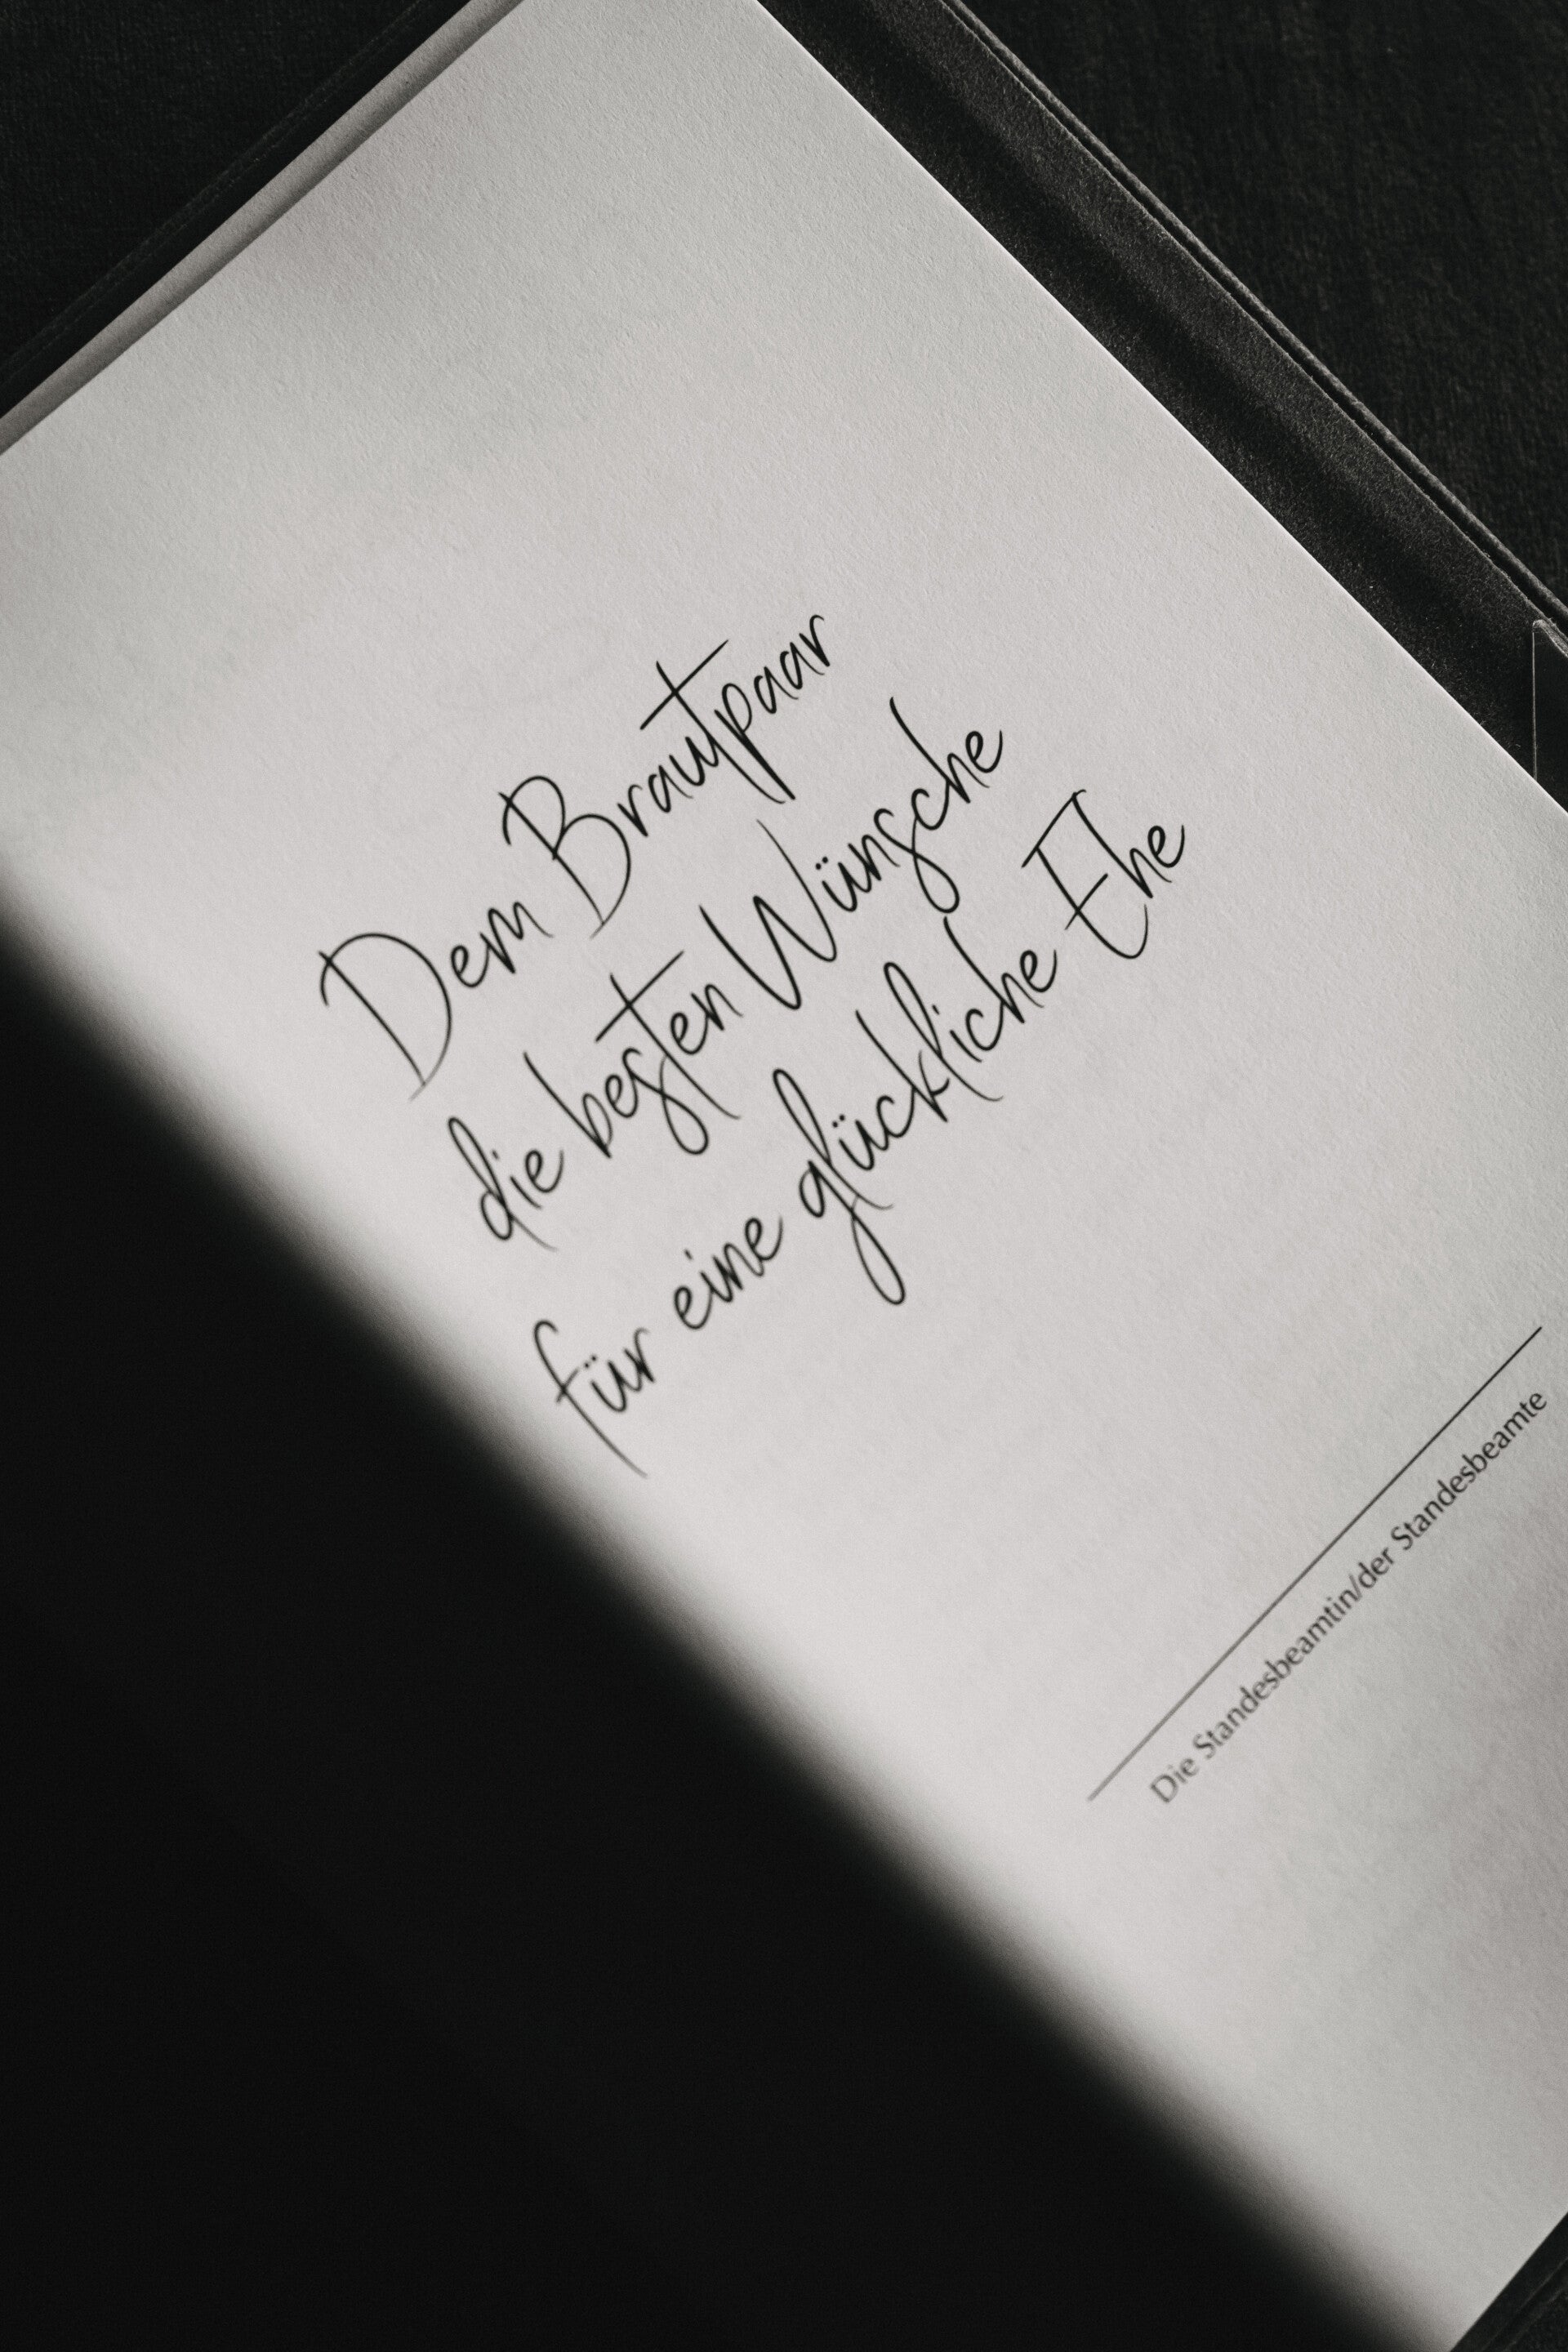 Dem Brautpaar
die besten Wünsche
für eine glückliche Ehe
Die Standesbeamtin/der Standesbeamte